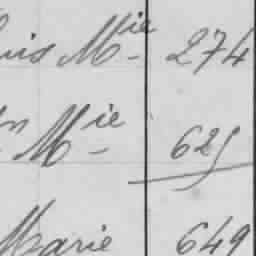 Mie 274
Mie 625
Marie 649